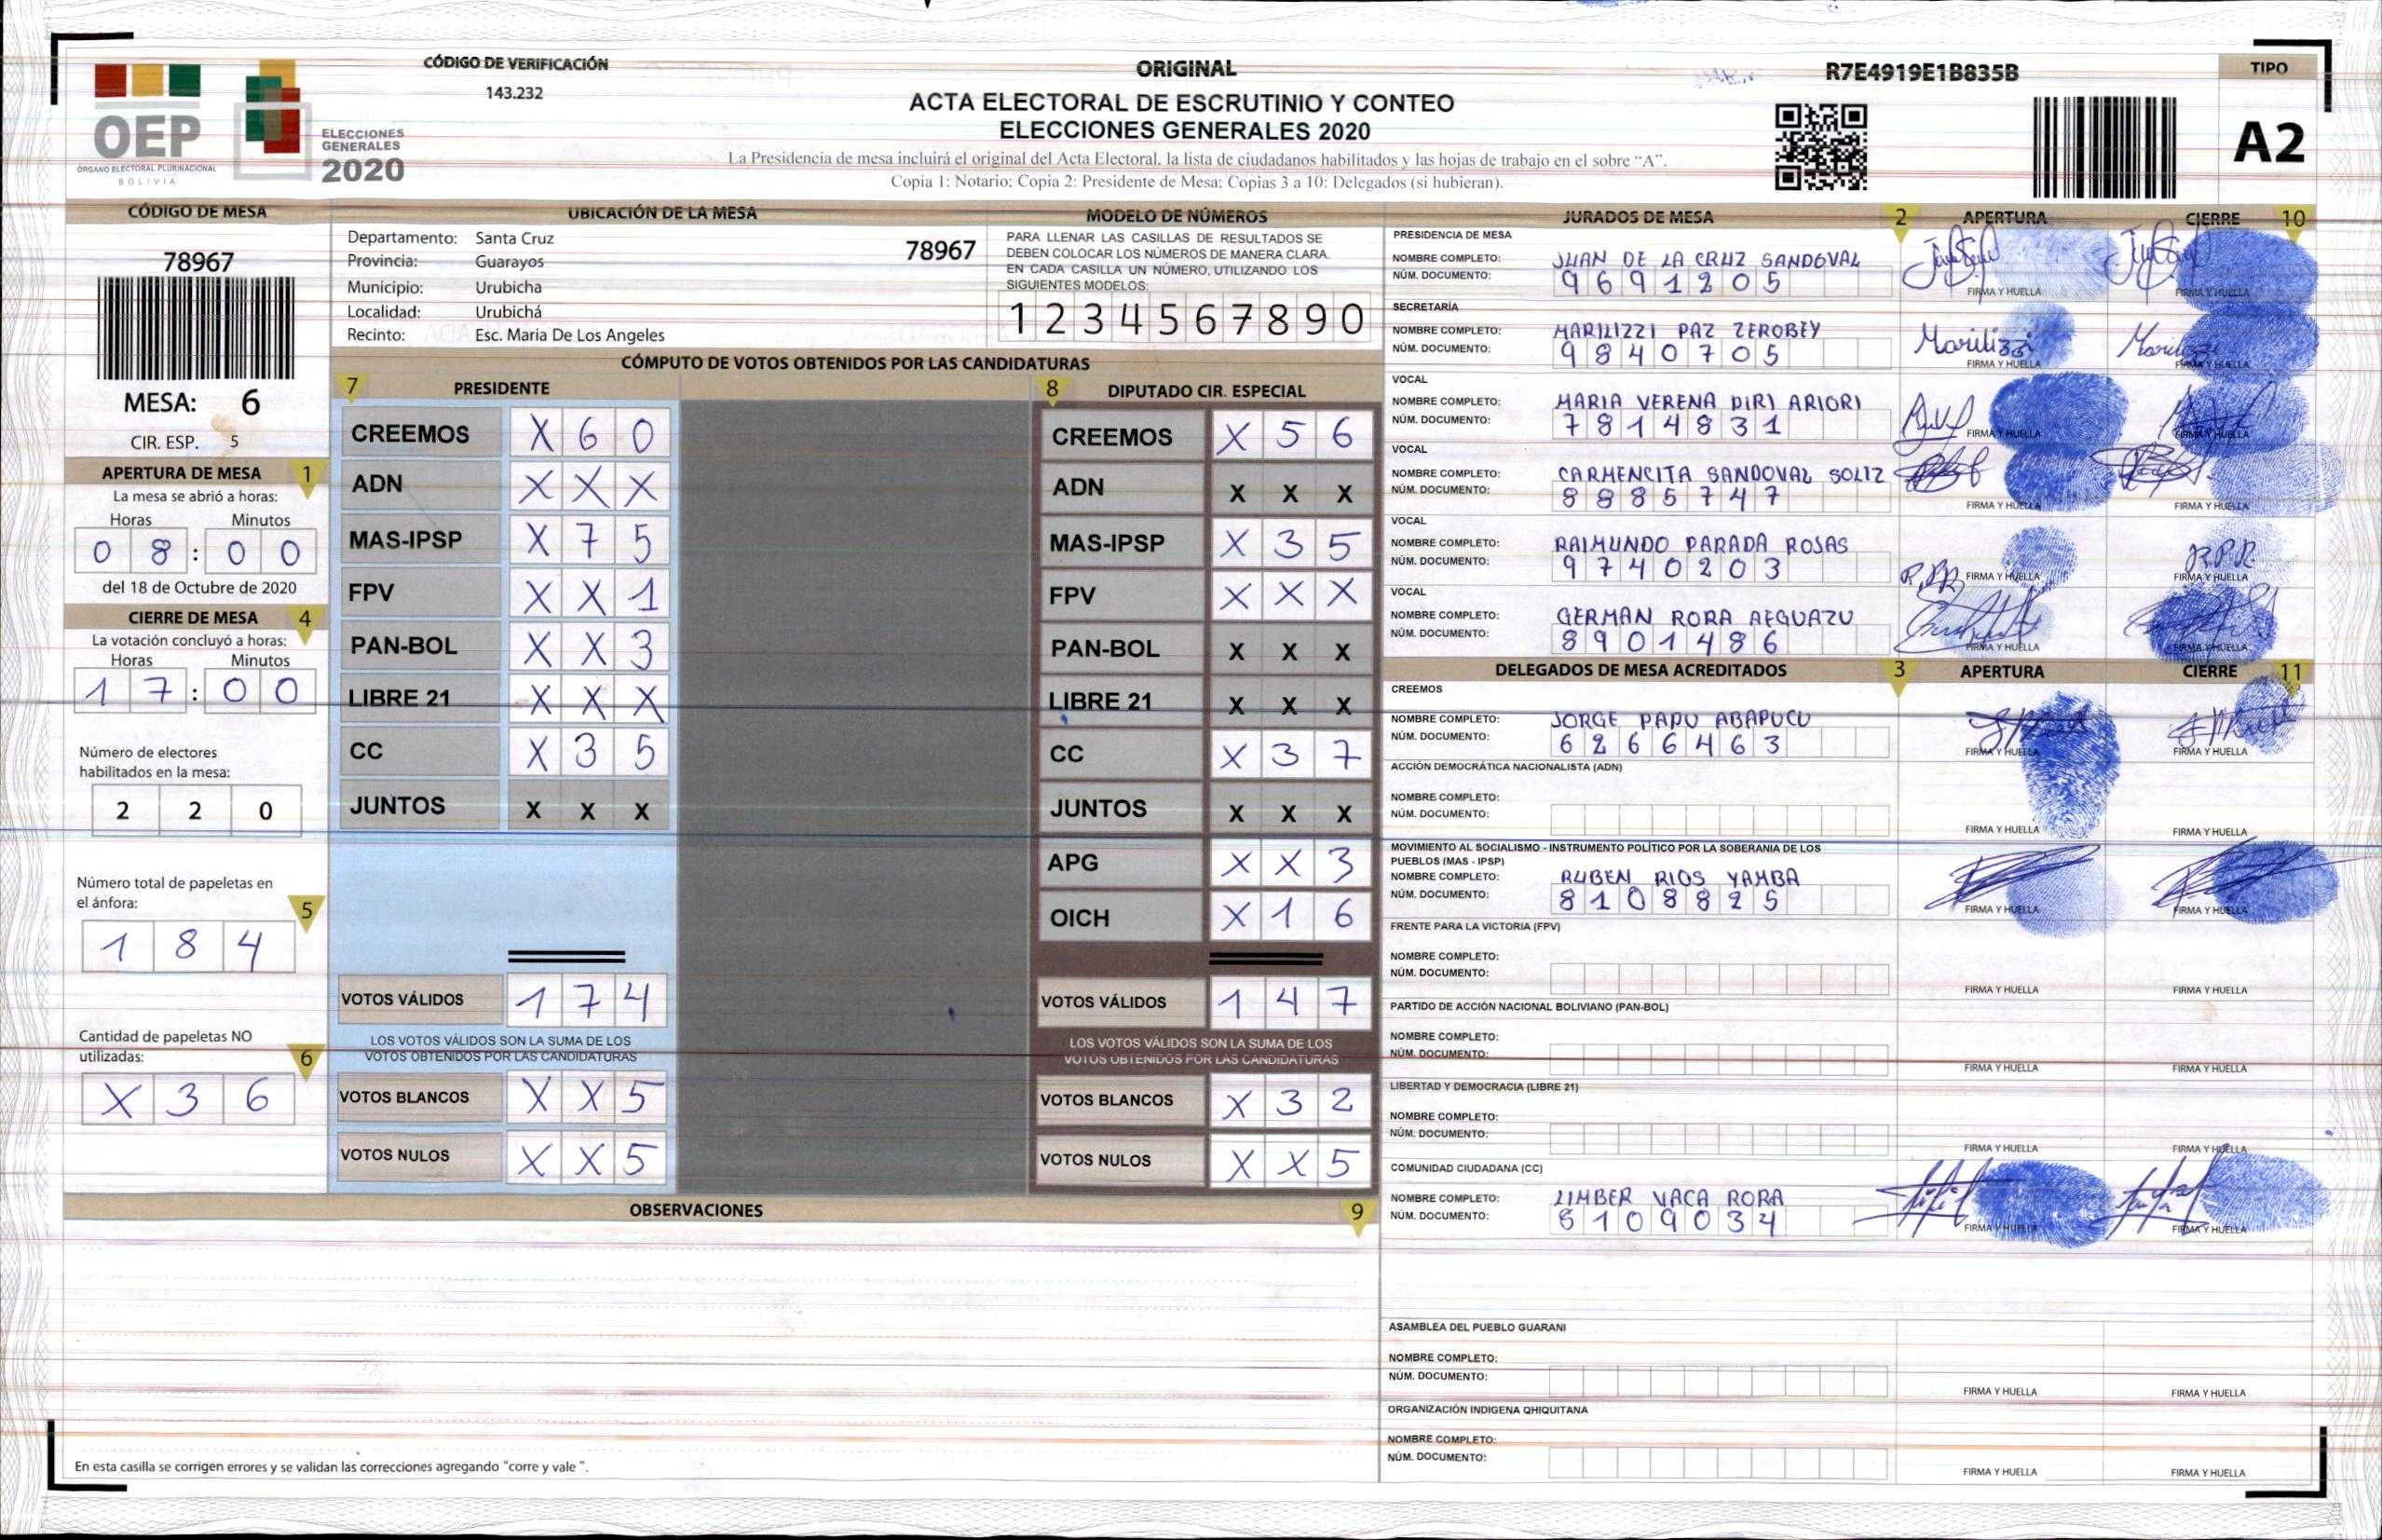 CÓDIGO DE VERIFICACIÓN
143.232
ORIGINAL
ACTA ELECTORAL DE ESCRUTINIO Y CONTEO
ELECCIONES GENERALES 2020
La Presidencia de mesa incluirá el original del Acta Electoral, la lista de ciudadanos habilitados y las hojas de trabajo en el sobre “A”.
Copia 1: Notario: Copia 2: Presidente de Mesa: Copias 3 a 10: Delegados (si hubieran).
R7E4919E1B835B
TIPO
A2
OEP
ÓRGANO ELECTORAL PLURINACIONAL
BOLIVIA
ELECCIONES
GENERALES
2020
CÓDIGO DE MESA
78967
MESA: 6
CIR. ESP. 5
APERTURA DE MESA 1
La mesa se abrió a horas:
Horas Minutos
0 8 : 0 0
del 18 de Octubre de 2020
CIERRE DE MESA 4
La votación concluyó a horas:
Horas Minutos
1 7 : 0 0
Número de electores
habilitados en la mesa:
2 2 0
Número total de papeletas en
el ánfora: 5
1 8 4
Cantidad de papeletas NO
utilizadas: 6
X 3 6
UBICACIÓN DE LA MESA
Departamento: Santa Cruz
78967
Provincia: Guarayos
Municipio: Urubicha
Localidad: Urubichá
Recinto: Esc. Maria De Los Angeles
MODELO DE NÚMEROS
PARA LLENAR LAS CASILLAS DE RESULTADOS SE
DEBEN COLOCAR LOS NÚMEROS DE MANERA CLARA.
EN CADA CASILLA UN NÚMERO, UTILIZANDO LOS
SIGUIENTES MODELOS:
1 2 3 4 5 6 7 8 9 0
CÓMPUTO DE VOTOS OBTENIDOS POR LAS CANDIDATURAS
7 PRESIDENTE
CREEMOS X 6 0
ADN X X X
MAS-IPSP X 7 5
FPV X X 1
PAN-BOL X X 3
LIBRE 21 X X X
CC X 3 5
JUNTOS X X X
VOTOS VÁLIDOS 1 7 4
LOS VOTOS VÁLIDOS SON LA SUMA DE LOS
VOTOS OBTENIDOS POR LAS CANDIDATURAS
VOTOS BLANCOS X X 5
VOTOS NULOS X X 5
8 DIPUTADO CIR. ESPECIAL
CREEMOS X 5 6
ADN X X X
MAS-IPSP X 3 5
FPV X X X
PAN-BOL X X X
LIBRE 21 X X X
CC X 3 7
JUNTOS X X X
APG X X 3
OICH X 1 6
VOTOS VÁLIDOS 1 4 7
LOS VOTOS VÁLIDOS SON LA SUMA DE LOS
VOTOS OBTENIDOS POR LAS CANDIDATURAS
VOTOS BLANCOS X 3 2
VOTOS NULOS X X 5
OBSERVACIONES 9
En esta casilla se corrigen errores y se validan las correcciones agregando "corre y vale ".
JURADOS DE MESA 2 APERTURA CIERRE 10
PRESIDENCIA DE MESA
NOMBRE COMPLETO: JUAN DE LA CRUZ SANDOVAL
NÚM. DOCUMENTO: 9 6 9 1 2 0 5
FIRMA Y HUELLA FIRMA Y HUELLA
SECRETARÍA
NOMBRE COMPLETO: MARILIZZI PAZ ZEROBEY
NÚM. DOCUMENTO: 9 8 4 0 7 0 5
FIRMA Y HUELLA FIRMA Y HUELLA
VOCAL
NOMBRE COMPLETO: MARIA VERENA PIRI ARIORI
NÚM. DOCUMENTO: 7 8 1 4 8 3 1
FIRMA Y HUELLA FIRMA Y HUELLA
VOCAL
NOMBRE COMPLETO: CARMENCITA SANDOVAL SOLIZ
NÚM. DOCUMENTO: 8 8 8 5 7 4 7
FIRMA Y HUELLA FIRMA Y HUELLA
VOCAL
NOMBRE COMPLETO: RAIMUNDO PARADA ROSAS
NÚM. DOCUMENTO: 9 7 4 0 2 0 3
R.P.R. FIRMA Y HUELLA R.P.R. FIRMA Y HUELLA
VOCAL
NOMBRE COMPLETO: GERMAN RORA AEGUAZU
NÚM. DOCUMENTO: 8 9 0 1 4 8 6
FIRMA Y HUELLA FIRMA Y HUELLA
DELEGADOS DE MESA ACREDITADOS 3 APERTURA CIERRE 11
CREEMOS
NOMBRE COMPLETO: JORGE PAPU ABAPUCU
NÚM. DOCUMENTO: 6 2 6 6 4 6 3
FIRMA Y HUELLA FIRMA Y HUELLA
ACCIÓN DEMOCRÁTICA NACIONALISTA (ADN)
NOMBRE COMPLETO:
NÚM. DOCUMENTO:
FIRMA Y HUELLA FIRMA Y HUELLA
MOVIMIENTO AL SOCIALISMO - INSTRUMENTO POLÍTICO POR LA SOBERANIA DE LOS
PUEBLOS (MAS - IPSP)
NOMBRE COMPLETO: RUBEN RIOS YAMBA
NÚM. DOCUMENTO: 8 1 0 8 8 2 5
FIRMA Y HUELLA FIRMA Y HUELLA
FRENTE PARA LA VICTORIA (FPV)
NOMBRE COMPLETO:
NÚM. DOCUMENTO:
FIRMA Y HUELLA FIRMA Y HUELLA
PARTIDO DE ACCIÓN NACIONAL BOLIVIANO (PAN-BOL)
NOMBRE COMPLETO:
NÚM. DOCUMENTO:
FIRMA Y HUELLA FIRMA Y HUELLA
LIBERTAD Y DEMOCRACIA (LIBRE 21)
NOMBRE COMPLETO:
NÚM. DOCUMENTO:
FIRMA Y HUELLA FIRMA Y HUELLA
COMUNIDAD CIUDADANA (CC)
NOMBRE COMPLETO: LIMBER VACA RORA
NÚM. DOCUMENTO: 8 1 0 9 0 3 4
FIRMA Y HUELLA FIRMA Y HUELLA
ASAMBLEA DEL PUEBLO GUARANI
NOMBRE COMPLETO:
NÚM. DOCUMENTO:
FIRMA Y HUELLA FIRMA Y HUELLA
ORGANIZACIÓN INDIGENA QHIQUITANA
NOMBRE COMPLETO:
NÚM. DOCUMENTO:
FIRMA Y HUELLA FIRMA Y HUELLA